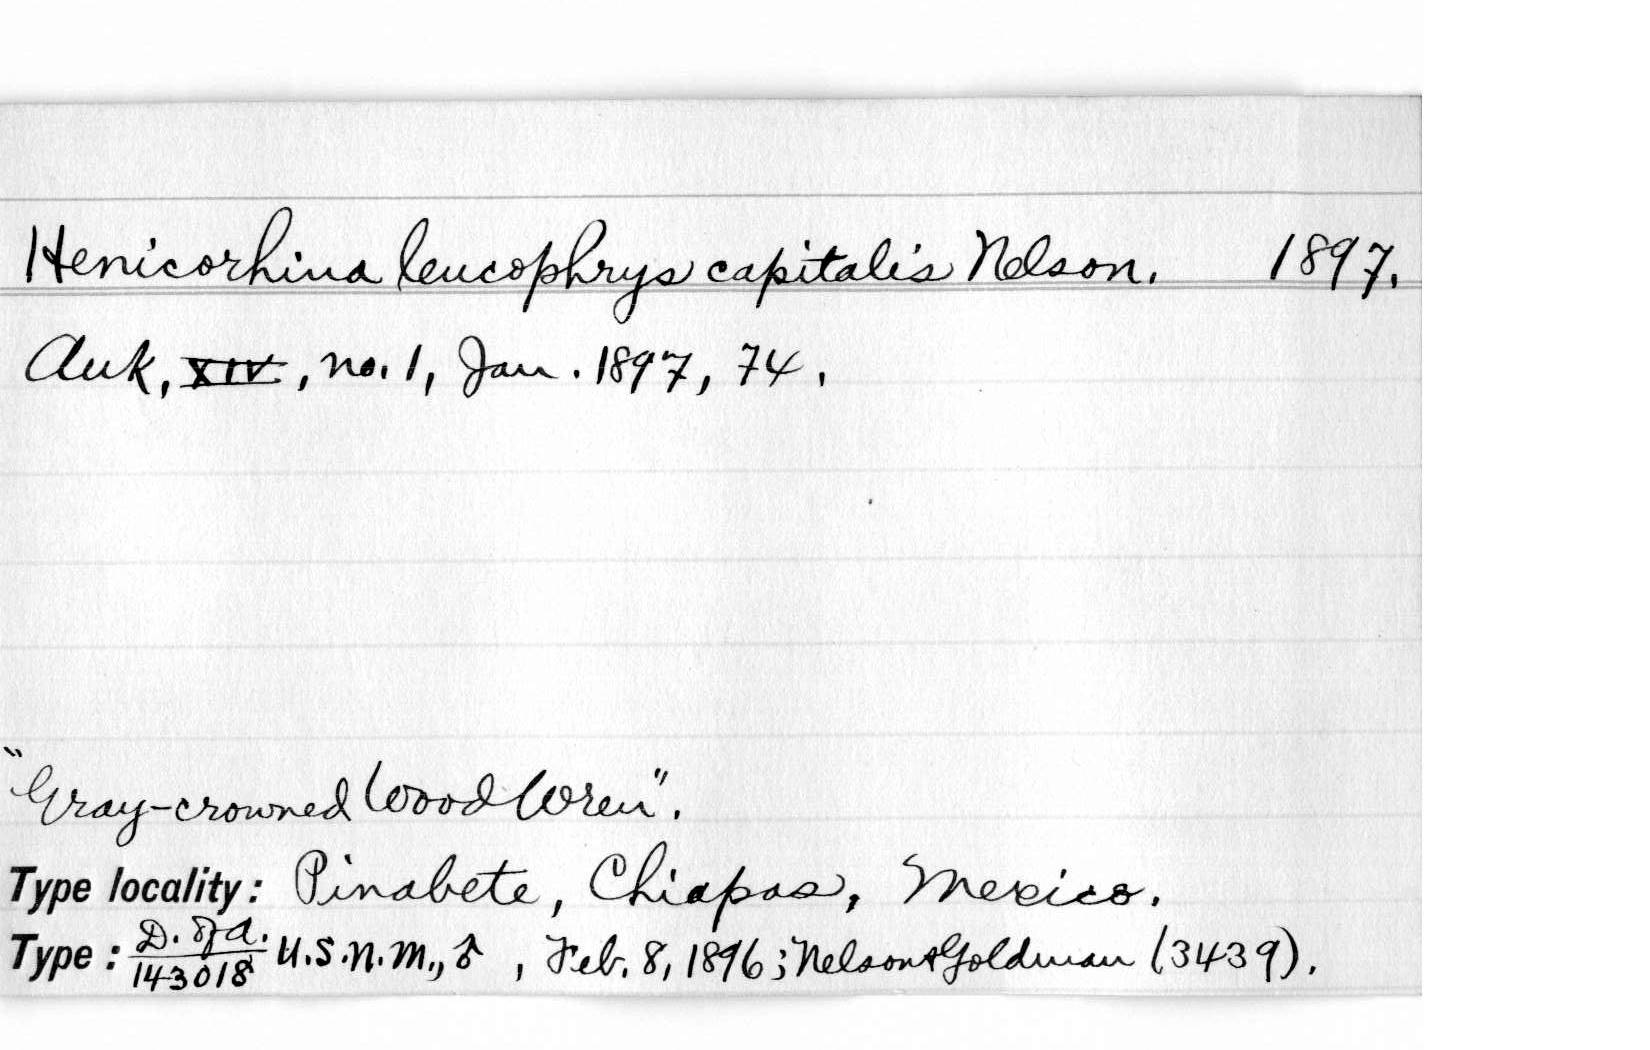 Henicorhina leucophrys capitalis Nelson. 1897.
Auk, XIV, no. 1, Jan. 1897, 74.
"Gray-crowned Wood Wren".
Type locality: Pinabete, Chiapas, Mexico.
Type: D. of A. / 143018 U.S.N.M., ♂, Feb. 8, 1896; Nelson & Goldman (3439).